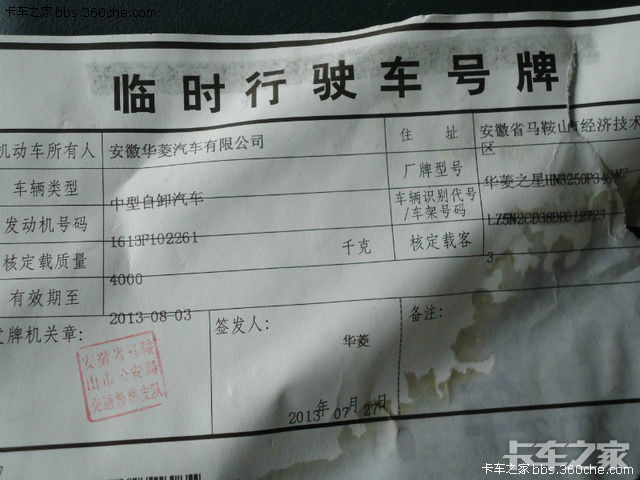 卡车之家 bbs.360che.com
卡车之家 bbs.360che.com
临时行驶车号牌
机动车所有人 安徽华菱汽车有限公司 住址 安徽省马鞍山市经济技术
区
车辆类型 中型自卸汽车 厂牌型号 华菱之星HN3250P34
发动机号码 1613F102261 车辆识别代号
/车架号码
核定载质量 4000 千克 核定载客 3
有效期至 2013-08-03
发牌机关章: 签发人: 华菱 备注:
安徽省马鞍
山市公安局
交通警察支队
2013年07月27日
卡车之家
卡车之家 bbs.360che.com